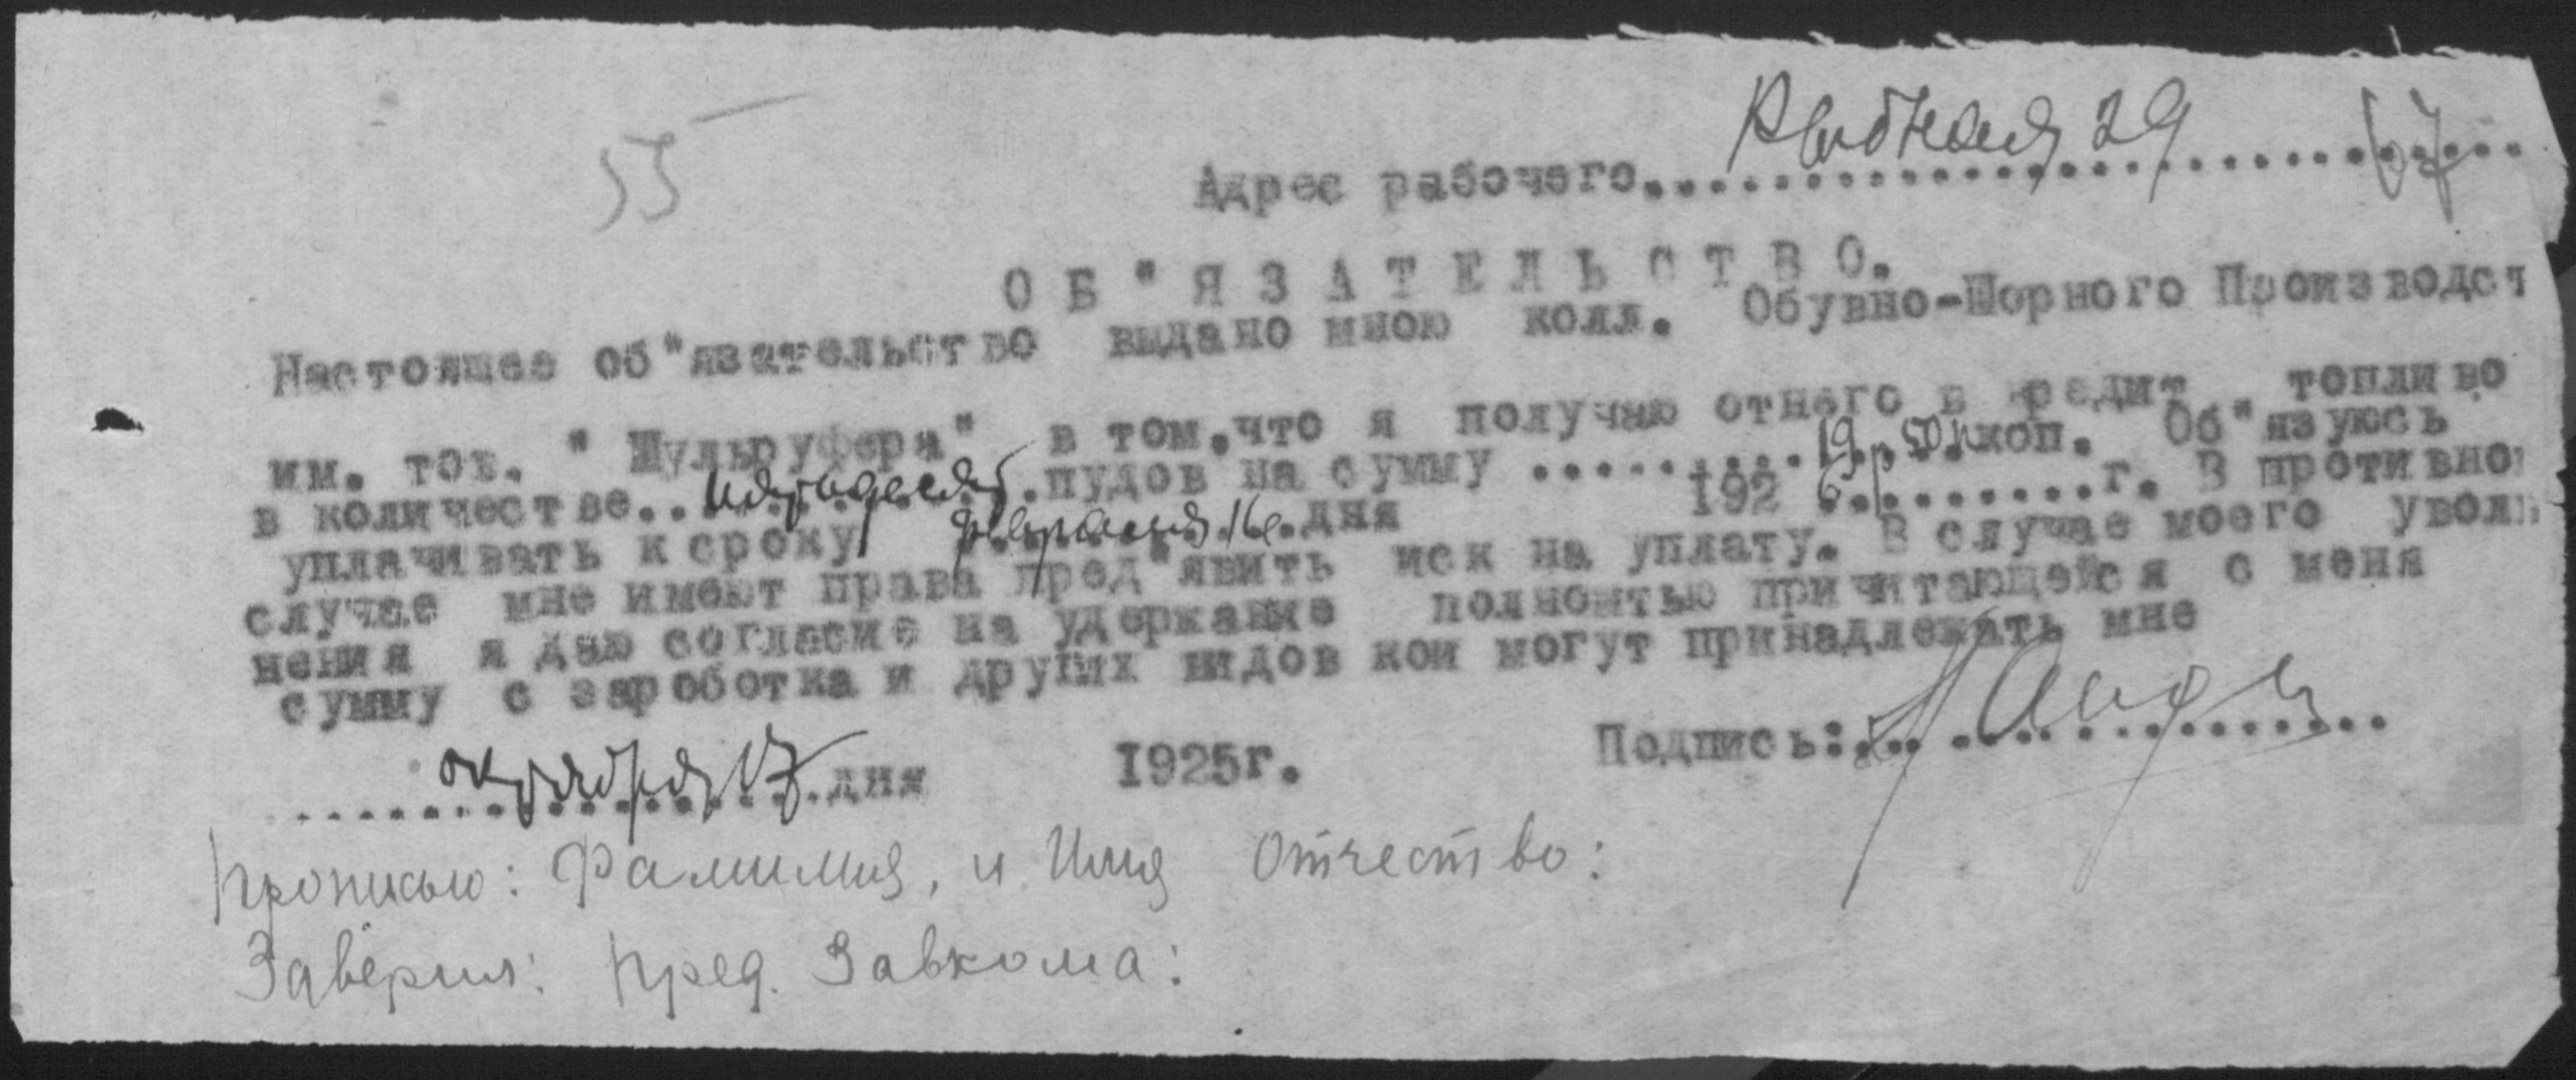 55
67
Адрес рабочего.......Рыбная 29.......
ОБ"ЯЗАТЕЛЬСТВО.
Настоящее об"язательство выдано мною колл. Обувно-Шорного Производст
им. тов. " Шульруфера" в том,что я получаю отнего в кредит топливо
в количестве..пятьдесят.пудов на сумму .........19 р 50 к коп. Об"язуюсь
уплачивать к сроку февраля 16.дня 192 6 г. В противно
случае мне имеют права пред"явить иск на уплату. В случае моего уволь
нения я даю согласие на удержание полностью причитающейся с меня
сумму с зароботка и других видов кои могут принадлежать мне
октября 17 дня 1925г. Подпись:
Прописью: Фамилия, и Имя Отчество:
Заверил: Пред. Завкома: